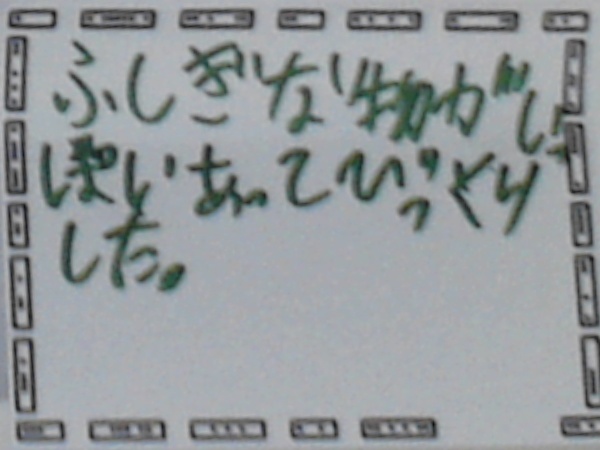 ふしぎな物がいっ
ぱいあってびっくり
した。